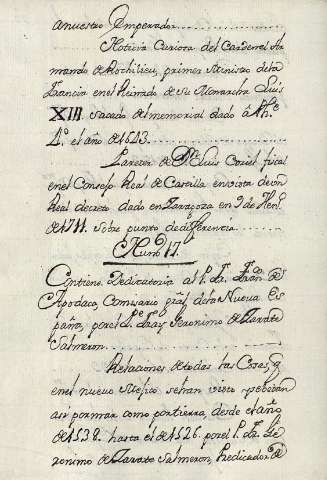 anuestro Emperador
Noticia Curiosa del Cardenal Ar
mando de Rochilieu, primer Ministro dela
Francia en el Reinado de Su Monarcha Luis
XIII sacado del memorial dado â Ph.e
4.º el año de 1643.
de D.n Luis Curiel fiscal
en el Consejo Real de Castilla en vista de un
Real decreto dado en Zaragoza en 9 de Hen.º
de 1711. sobre punto de differencia
Num.º 17.
Contiene Dedicatoria al P. Fr. Fran.co de
Apodaca, Comisario gral dela Nueva Es
paña, por el P. Fray Geronimo de Zarate
Salmeron.
Relaciones de todas las Cosas, q.
en el nuevo Mexico se han visto y sabido
asi por mar como por tierra, desde el año
de 1538. hasta el de 1626. por el P. Fr. Ge
ronimo de Zarate Salmeron, Predicador de